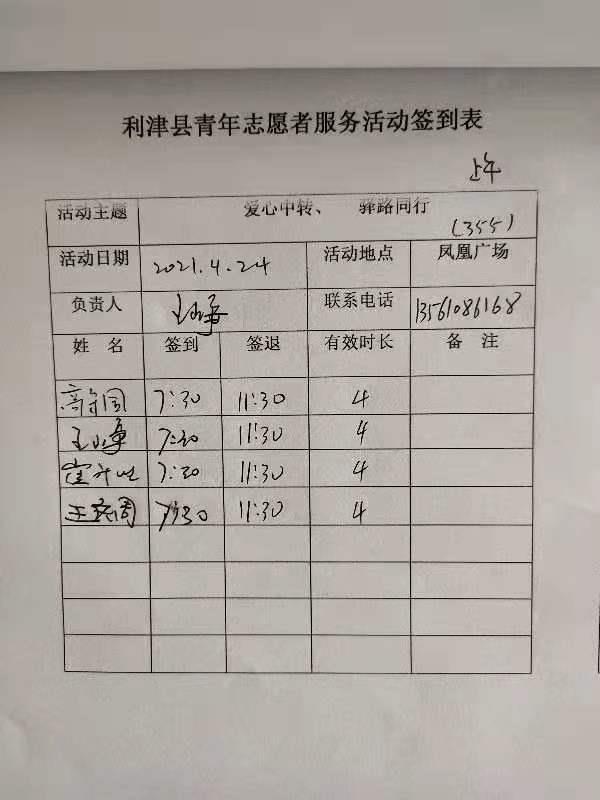 利津县青年志愿者服务活动签到表
上午
活动主题 爱心中转、 驿路同行
(355)
活动日期 2021.4.24 活动地点 凤凰广场
负责人 联系电话 13561086168
姓 名 签到 签退 有效时长 备 注
7:30 11:30 4
7:30 11:30 4
7:30 11:30 4
7:30 11:30 4